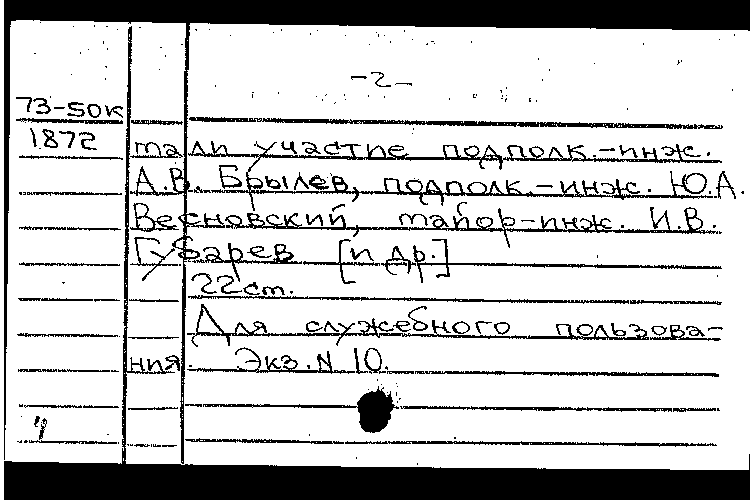 -2-
73-50к
1872
тали участие подполк.-инж.
А.В. Брылев, подполк.-инж. Ю.А.
Весновский, майор-инж. И.В.
Губарев [и др.]
22 ст.
Для служебного пользова-
ния. Экз. N 10.
4